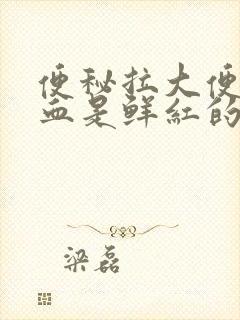 便秘拉大便
血是鲜红的
梁磊